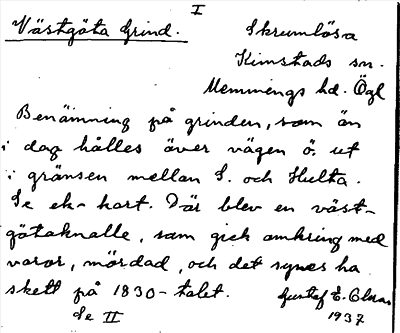 I
Västgöta Grind. Skrumlösa
Kimstads sn.
Memmings hd. Ögl
Benämning på grinden, som än
i dag hålles över vägen ö. ut
i gränsen mellan S. och Hulta.
Se ek-kart. Där blev en väst-
götaknalle, som gick omkring med
varor, mördad, och det synes ha
skett på 1830-talet. Gustaf E.
Se II 1937